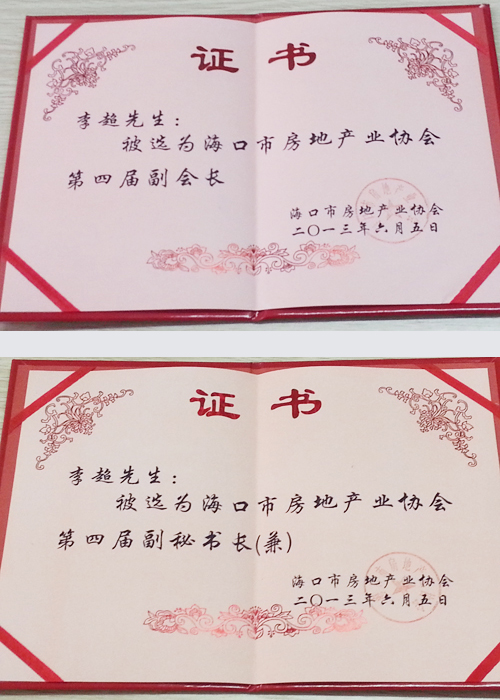 证书
李超先生：
被选为海口市房地产业协会
第四届副会长
海口市房地产业协会
二〇一三年六月五日
证书
李超先生：
被选为海口市房地产业协会
第四届副秘书长(兼)
海口市房地产业协会
二〇一三年六月五日